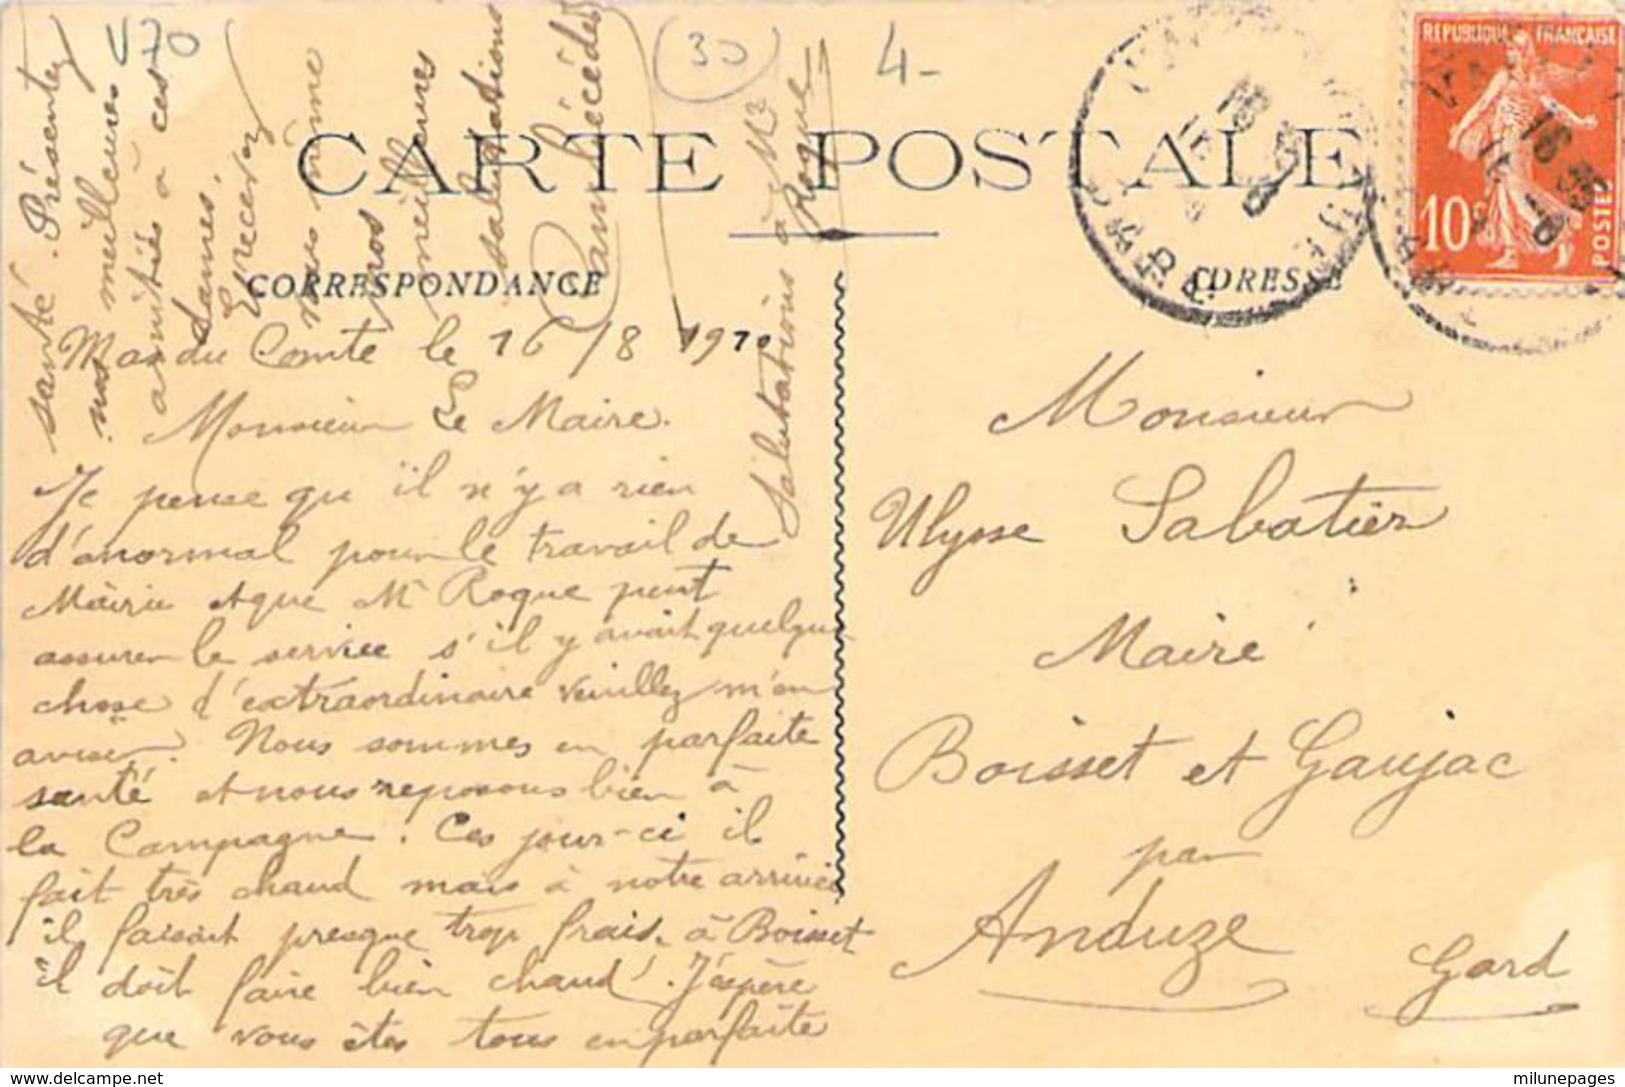 V70
30
4-
CARTE POSTALE
CORRESPONDANCE
ADRESSE
REPUBLIQUE FRANÇAISE
10c
POSTES
16
Mas du Comte le 16/8 1910
Monsieur Le Maire.
Je pense qu'il n'y a rien
d'anormal pour le travail de
Mairie et que Mr Roque peut
assurer le service s'il y avait quelque
chose d'extraordinaire veuillez m'en
aviser. Nous sommes en parfaite
santé et nous reposons bien à
la Campagne. Ces jour-ci il
fait très chaud mais à notre arrivée
il faisait presque trop frais. à Boisset
il doit faire bien chaud. J'espère
que vous êtes tous en parfaite
santé. Présentez
nos meilleures
amitiés à ces
dames.
et recevez
vous même
nos
meilleures
salutations
Salutations à Mr
Roque
Monsieur
Ulysse Sabatier
Maire
Boisset et Gaujac
par
Anduze
Gard
www.delcampe.net
milunepages